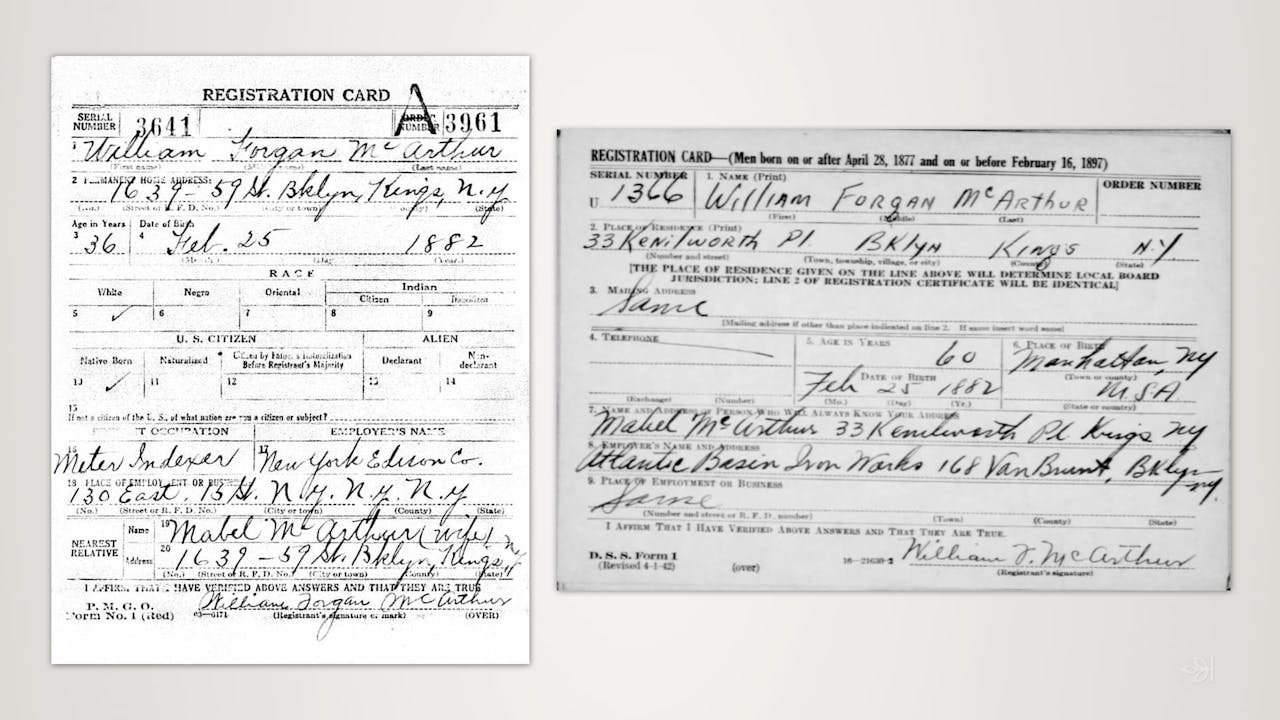 REGISTRATION CARD
SERIAL NUMBER 3641 A ORDER NUMBER 3961
1 William Forgan McArthur
(First name) (Last name)
2 PERMANENT HOME ADDRESS:
1639 - 59 St. Bklyn, Kings, N.Y
(No.) (Street or R. F. D. No.) (City or town) (County) (State)
Age in Years Date of Birth
3 36 4 Feb. 25 1882
(Day.) (Year.)
RACE
White Negro Oriental Indian
Citizen Noncitizen
5 ✓ 6 7 8 9
U. S. CITIZEN ALIEN
Native Born Naturalized Citizen by Father's Naturalization Before Registrant's Majority Declarant Non-declarant
10 ✓ 11 12 13 14
15
If not a citizen of the U. S., of what nation are you a citizen or subject?
T OCCUPATION EMPLOYER'S NAME
Meter Indexer 17 New York Edison Co.
18 PLACE OF EMPLOYMENT OR BUSINESS
30 East. 15 St. N.Y. N.Y. N.Y
(No.) (Street or R. F. D. No.) (City or town) (County) (State)
NEAREST RELATIVE Name 19 Mabel McArthur (wife)
Address 20 1639 - 59 St. Bklyn, Kings, N.Y
(No.) (Street or R. F. D. No.) (City or town) (County) (State)
I AFFIRM THAT I HAVE VERIFIED ABOVE ANSWERS AND THAT THEY ARE TRUE
P. M. G. O.
Form No. 1 (Red) 03-6171 William Forgan McArthur
(Registrant's signature or mark) (OVER)
REGISTRATION CARD—(Men born on or after April 28, 1877 and on or before February 16, 1897)
SERIAL NUMBER 1. NAME (Print) ORDER NUMBER
U 1366 William Forgan McArthur
(First) (Middle) (Last)
2. PLACE OF RESIDENCE (Print)
33 Kenilworth Pl. Bklyn Kings N.Y.
(Number and street) (Town, township, village, or city) (County) (State)
[THE PLACE OF RESIDENCE GIVEN ON THE LINE ABOVE WILL DETERMINE LOCAL BOARD
JURISDICTION; LINE 2 OF REGISTRATION CERTIFICATE WILL BE IDENTICAL]
3. MAILING ADDRESS
Same
[Mailing address if other than place indicated on line 2. If same insert word same]
4. TELEPHONE 5. AGE IN YEARS 6. PLACE OF BIRTH
60 Manhattan, NY
DATE OF BIRTH (Town or county)
Feb 25 1882 USA.
(Exchange) (Number) (Mo.) (Day) (Yr.) (State or country)
7. NAME AND ADDRESS OF PERSON WHO WILL ALWAYS KNOW YOUR ADDRESS
Mabel McArthur 33 Kenilworth Pl Kings NY
8. EMPLOYER'S NAME AND ADDRESS
Atlantic Basin Iron Works 168 Van Brunt, Bklyn NY.
9. PLACE OF EMPLOYMENT OR BUSINESS
Same
(Number and street or R. F. D. number) (Town) (County) (State)
I AFFIRM THAT I HAVE VERIFIED ABOVE ANSWERS AND THAT THEY ARE TRUE.
D. S. S. Form 1
(Revised 4-1-42) (over) 16—21630-2 William F. McArthur
(Registrant's signature)